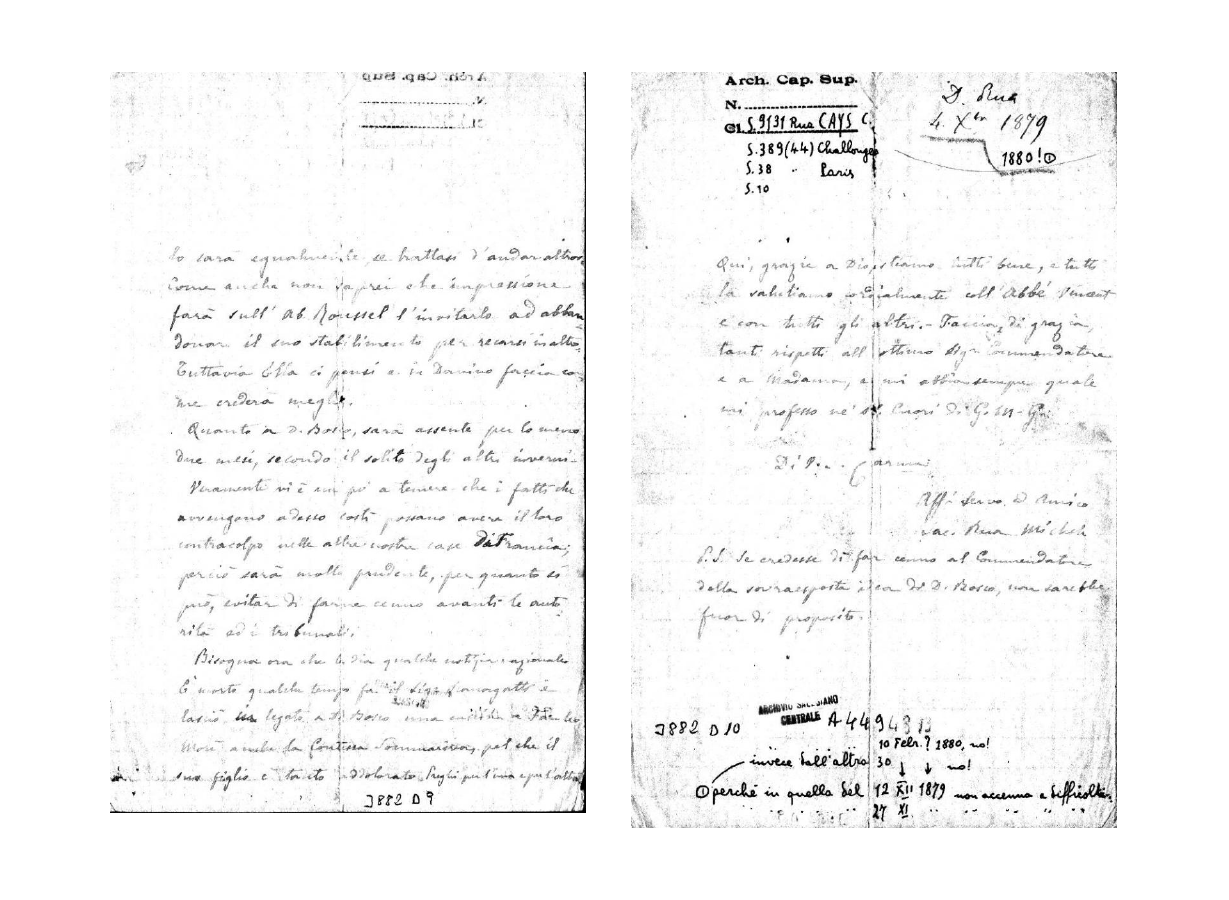 lo sarà egualmente, se trattasi d'andar altrove
Come anche non saprei che impressione
farà sull' Ab Roussel l'invitarlo ad abban
donare il suo stabilimento per recarsi in altro
Tuttavia Ella ci pensi e in Domino faccia co
me crederà meglio.
Quanto a D. Bosco, sarà assente per lo meno
due mesi, secondo il solito degli altri inverni -
Veramente vi è un po' a temere che i fatti che
avvengono adesso costì possano avere il loro
contracolpo nelle altre nostre case di Francia;
perciò sarà molto prudente, per quanto si
può, evitar di farne cenno avanti le auto
rità ed i tribunali.
Bisogna ora che le dia qualche notizia
È morto qualche tempo fa il Sigr
lasciò in legato a D. Bosco una
Morì anche la Contessa pel che il
suo figlio è tanto addolorato. Preghi per l'una e per l'altro
J882 D9
Arch. Cap. Sup.
N.
Cl. S.9131 Rua CAYS C.
S.389(44) Challonges
S.38 " Paris
S.10
D. Rua
4. Xbre 1879
1880! ①
Qui, grazie a Dio, stiamo tutti bene, e tutti
la salutiamo cordialmente coll' Abbé Vincent
e con tutti gli altri. - Faccia, di grazia,
tanti rispetti all' ottimo Sigr Commendatore
e a Madama, e mi abbia sempre quale
mi professo ne' SS. Cuori di G. M. G.
Di
Aff. Servo ed Amico
Sac. Rua Michele
P.S. Se credesse di far cenno al Commendatore
della sovraesposta idea di D. Bosco, non sarebbe
fuor di proposito.
ARCHIVIO SALESIANO
CENTRALE
J882 D 10
A 44943
10 Febr.? 1880, no!
invece dall'altra 30 ↓ ↓ no!
① perchè in quella del 12 XII 1879 non accenna a difficoltà.
27 XI " " " " "